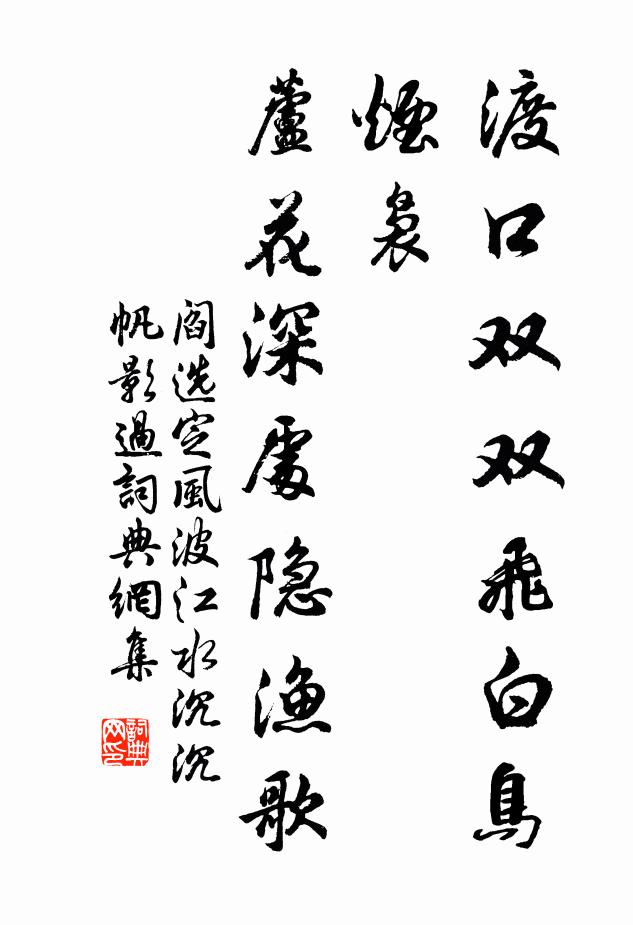 渡口双双飛白鳥
煙裊
蘆花深處隐漁歌
閻选定風波江水沉沉
帆影過詞典網集
詞典
网印